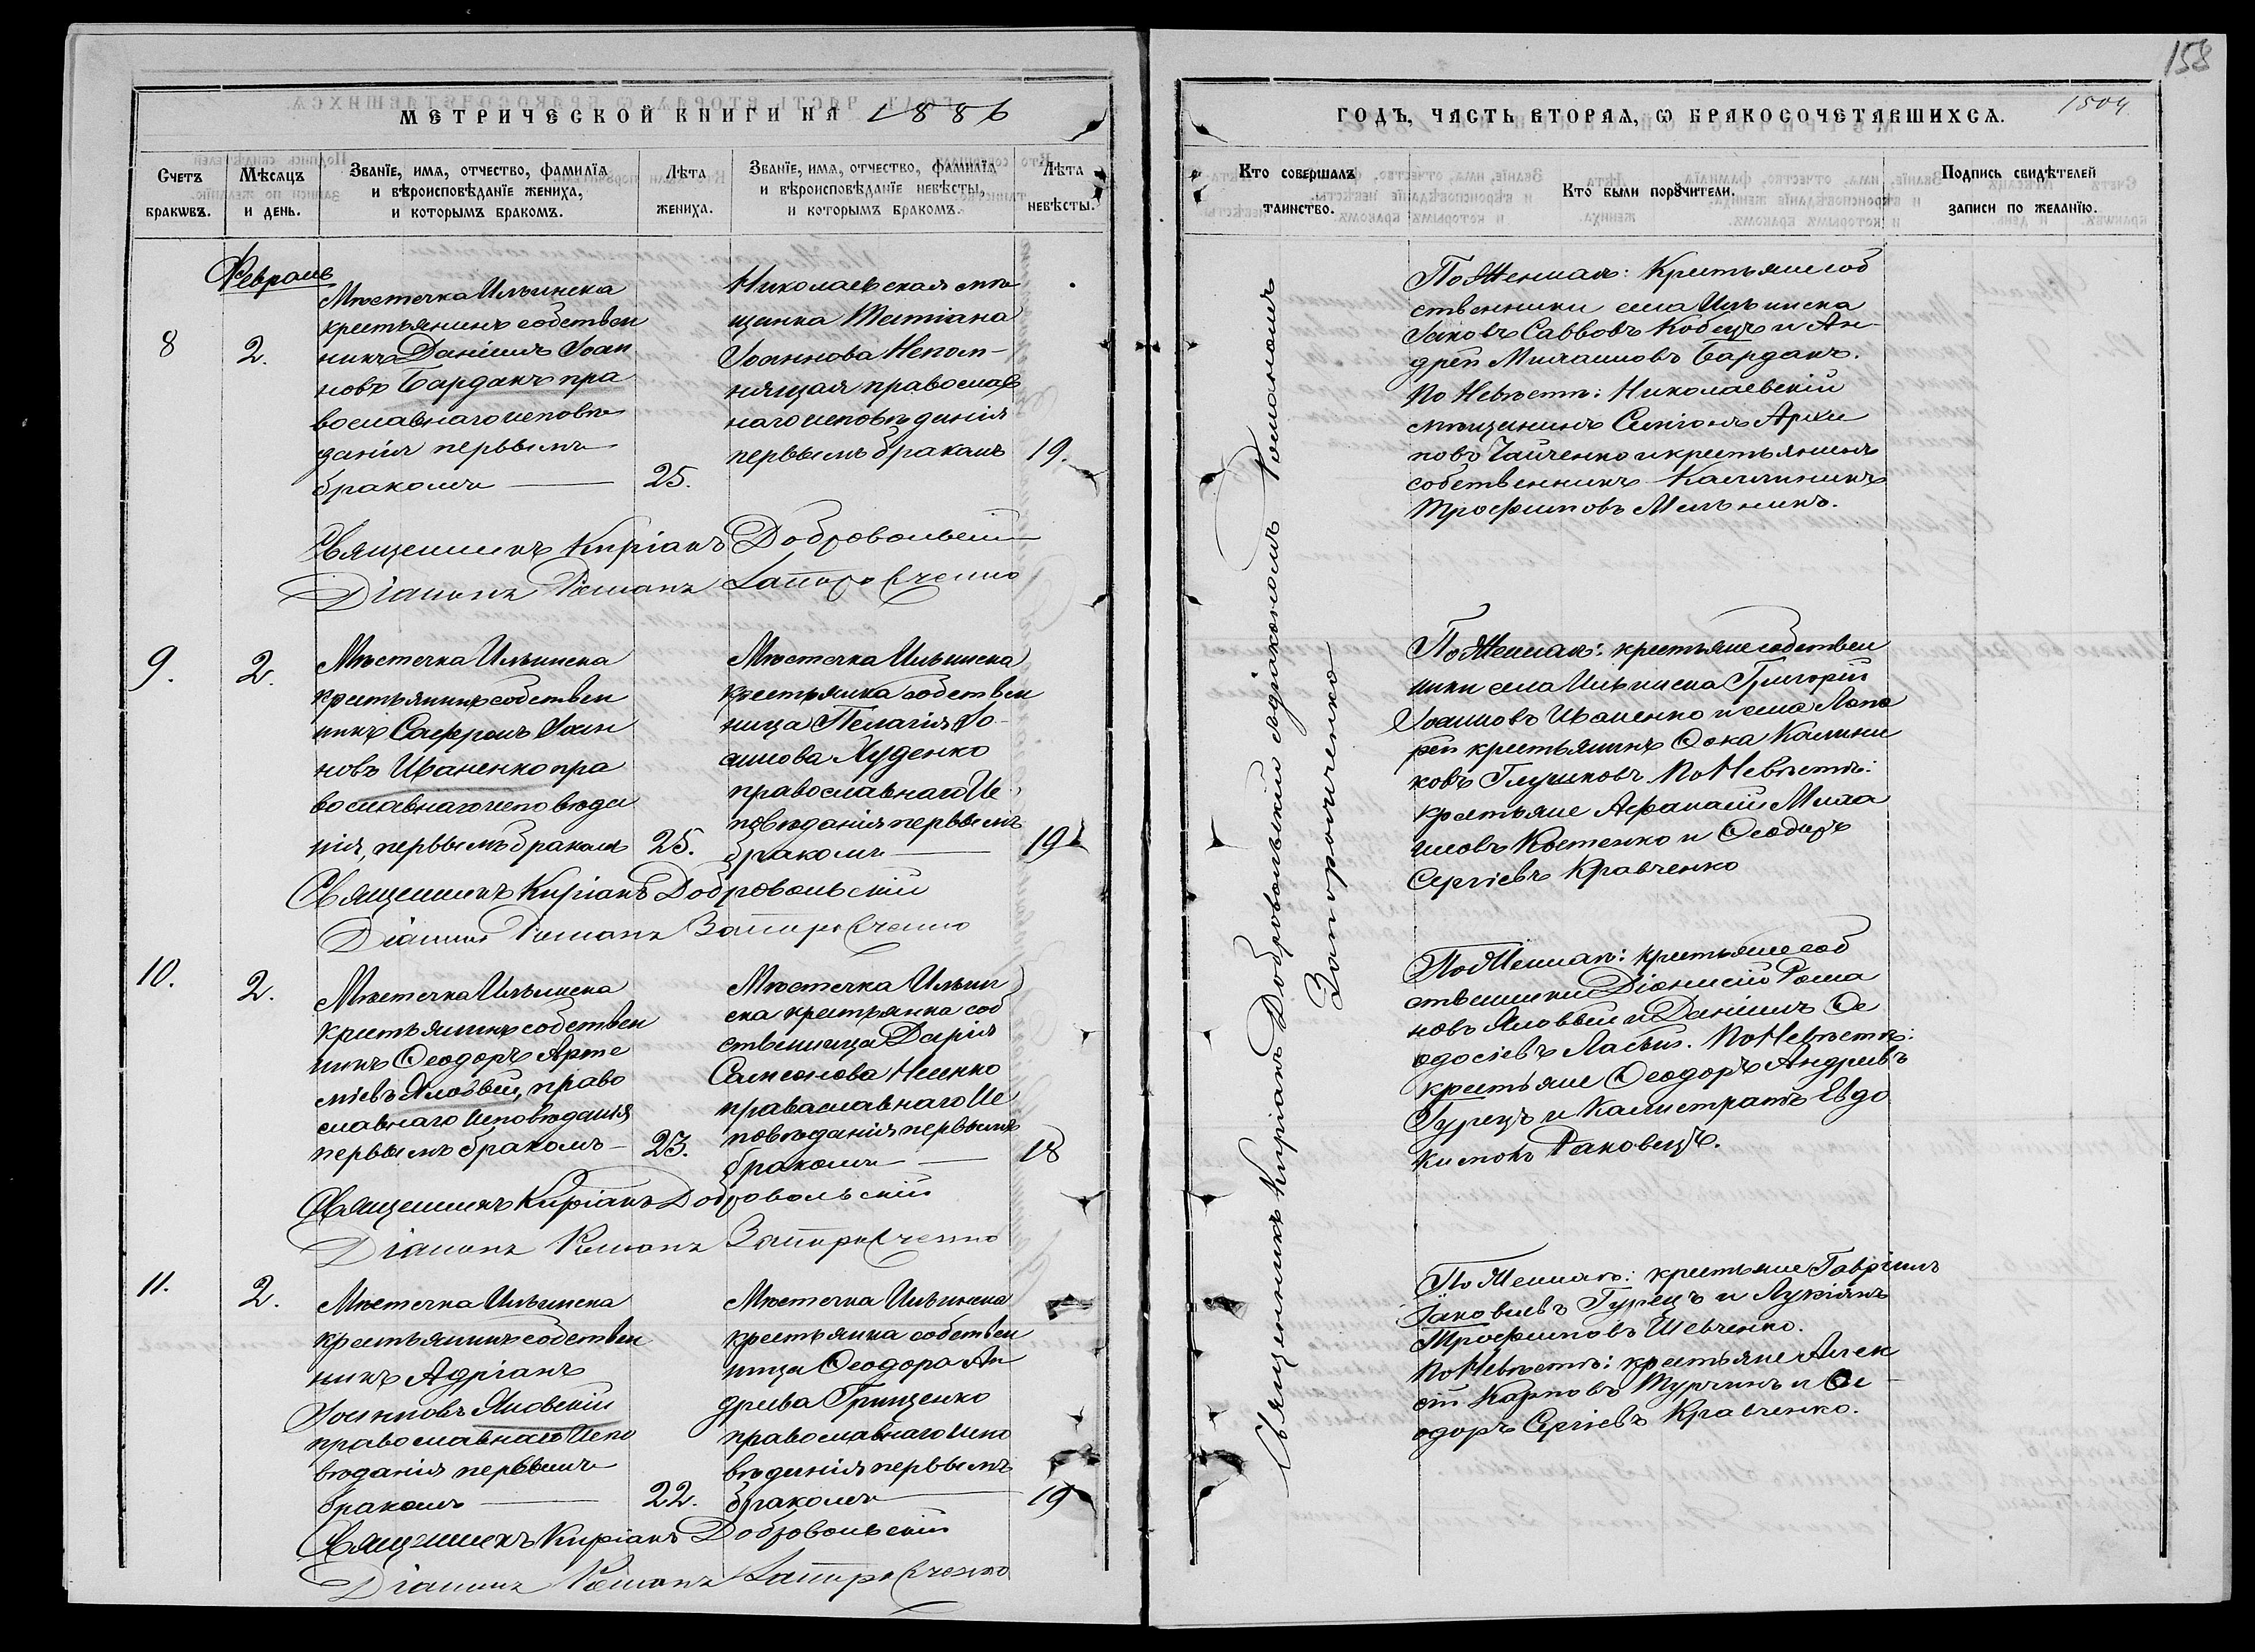 МЕТРИЧЕСКОЙ КНИГИ НА 1886
Счетъ браковъ.
Мѣсяцъ и день.
Званїе, имя, отчество, фамилїя
и вѣроисповѣданїе жениха,
и которымъ бракомъ.
Лѣта
жениха.
Званїе, имя, отчество, фамилїя
и вѣроисповѣданїе невѣсты,
и которымъ бракомъ.
Лѣта
невѣсты.
Февраль
8
2.
Мѣстечка Ильинска
крестьянинъ собствен
никъ Даніилъ Іоан
новъ Барданъ пра
вославнаго исповѣ
данія первымъ
бракомъ
25.
Николаевская мѣ
щанка Татіана
Іоаннова Непом-
нящая православ
наго исповѣданія
первымъ бракомъ
19.
Священникъ Киріакъ Добровольскій
Діаконъ Романъ Запорожченко
9.
2.
Мѣстечка Ильинска
крестьянинъ собствен
никъ Сафронъ Іоан
новъ Иваненко пра
вославнаго исповѣда
нія, первымъ бракомъ
25.
Мѣстечка Ильинска
крестьянка собствен
ница Пелагія Іо-
аннова Худенко
православнаго Ис
повѣданія первымъ
бракомъ
19
Священникъ Киріакъ Добровольскій
Діаконъ Романъ Запорожченко
10.
2.
Мѣстечка Ильинска
крестьянинъ собствен
никъ Ѳеодоръ Арте
міевъ Яловый, право
славнаго Исповѣданія
первымъ бракомъ
23.
Мѣстечка Ильин
ска крестьянка соб
ственница Дарія
Самсонова Ненко
православнаго Ис
повѣданія первымъ
бракомъ
18
Священникъ Киріакъ Добровольскій
Діаконъ Романъ Запорожченко
11.
2.
Мѣстечка Ильинска
крестьянинъ собствен
никъ Адріанъ
Іоанновъ Яновскій
православнаго Испо
вѣданія первымъ
бракомъ
22.
Мѣстечка Ильинска
крестьянка собствен
ница Ѳеодора Ан
дреева Грищенко
православнаго испо
вѣданія первымъ
бракомъ
19
Священникъ Киріакъ Добровольскій
Діаконъ Романъ Запорожченко
158
ГОДЪ, ЧАСТЬ ВТОРАЯ, Ѡ БРАКОСОЧЕТАВШИХСЯ.
1504
Кто совершалъ
таинство.
Кто были порꙋчители.
Подпись свидѣтелей
записи по желанїю.
Священникъ Киріакъ Добровольскій съ діакономъ Романомъ
Запорожченко
По Женихѣ: Крестьяне соб
ственники села Ильинска
Іаковъ Саввовъ Кобецъ и Ан-
дрей Михаиловъ Барданъ.
По Невѣстѣ: Николаевскій
мѣщанинъ Симеонъ Архи
повъ Чайченко и крестьянинъ
собственникъ Каллиникъ
Трофимовъ Мельникъ.
По Женихѣ: крестьяне собствен
ники села Ильинска Григорій
Іоанновъ Иваненко и села Лапа
рей крестьянинъ Ѳока Калини
ковъ Глушковъ. По Невѣстѣ:
крестьяне Афанасій Миха
иловъ Костенко и Ѳеодоръ
Сергіевъ Кравченко
По Женихѣ: крестьяне соб
ственники Діонисій Рома
новъ Яловый и Даніилъ Ѳе
одосіевъ Ласый. По Невѣстѣ:
крестьяне Ѳеодоръ Андреевъ
Гурецъ и Калистратъ Евдо
кимовъ Раковецъ.
По Женихѣ: крестьяне Гавріилъ
Іаковлевъ Гурецъ и Лукіанъ
Трофимовъ Шевченко.
По Невѣстѣ: крестьяне Алек
сій Карповъ Турчинъ и Ѳе
одоръ Сергіевъ Кравченко.